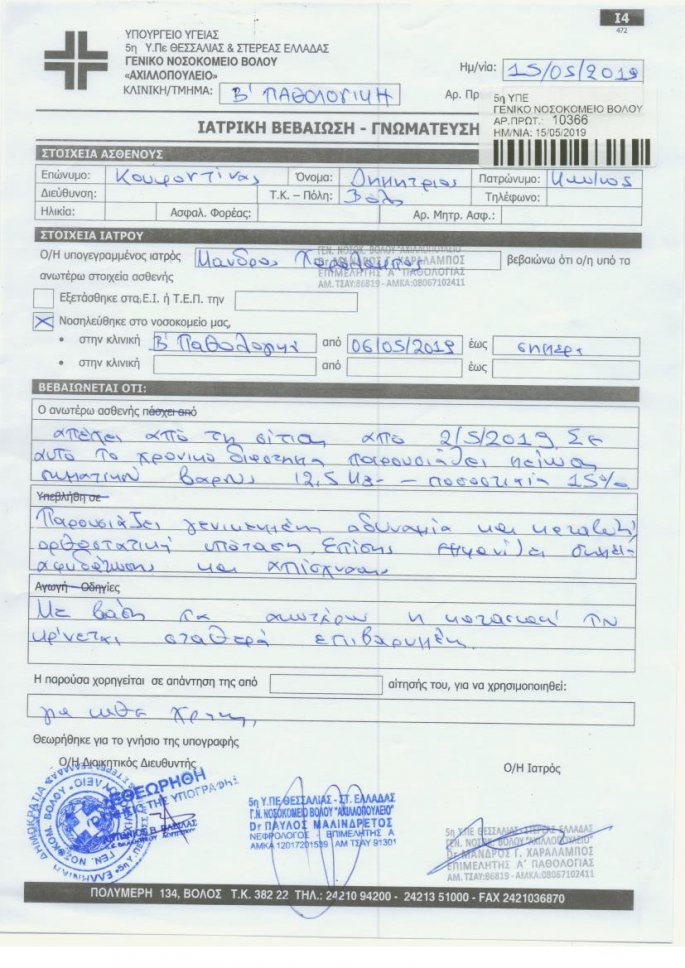 I4
472
ΥΠΟΥΡΓΕΙΟ ΥΓΕΙΑΣ
5η Υ.Πε ΘΕΣΣΑΛΙΑΣ & ΣΤΕΡΕΑΣ ΕΛΛΑΔΑΣ
ΓΕΝΙΚΟ ΝΟΣΟΚΟΜΕΙΟ ΒΟΛΟΥ
«ΑΧΙΛΛΟΠΟΥΛΕΙΟ»
ΚΛΙΝΙΚΗ/ΤΜΗΜΑ: Β' ΠΑΘΟΛΟΓΙΚΗ
Ημ/νία: 15/05/2019
Αρ. Πρ
5η ΥΠΕ
ΓΕΝΙΚΟ ΝΟΣΟΚΟΜΕΙΟ ΒΟΛΟΥ
ΑΡ.ΠΡΩΤ.: 10366
ΗΜ/ΝΙΑ: 15/05/2019
ΙΑΤΡΙΚΗ ΒΕΒΑΙΩΣΗ - ΓΝΩΜΑΤΕΥΣΗ
ΣΤΟΙΧΕΙΑ ΑΣΘΕΝΟΥΣ
Επώνυμο: Κουφοντίνας Όνομα: Δημητριος Πατρώνυμο:
Διεύθυνση: Τ.Κ. – Πόλη: Τηλέφωνο:
Ηλικία: Ασφαλ. Φορέας: Αρ. Μητρ. Ασφ.:
ΣΤΟΙΧΕΙΑ ΙΑΤΡΟΥ
Ο/Η υπογεγραμμένος ιατρός Μανδρος Χαράλαμπος βεβαιώνω ότι ο/η υπό τα
ανωτέρω στοιχεία ασθενής
Εξετάσθηκε στα Ε.Ι. ή Τ.Ε.Π. την
Νοσηλεύθηκε στο νοσοκομείο μας,
• στην κλινική Β' Παθολογικη από 06/05/2019 έως σημερα
• στην κλινική από έως
ΒΕΒΑΙΩΝΕΤΑΙ ΟΤΙ:
Ο ανωτέρω ασθενής πάσχει από
απέχει από τη σίτιση από 2/5/2019. Σε
αυτο το χρονικο διαστημα παρουσιάζει μείωση
σωματικού βαρους 12,5 - ποσοστιαία 15%
Υπεβλήθη σε
Παρουσιάζει γενικευμένη αδυναμία και
ορθοστατική υπόταση. Επίσης εμφανίζει σημεία
αφυδάτωσης και απίσχνανση
Αγωγή – Οδηγίες
Με βάση τα ανωτέρω η κατασταση του
κρίνεται σταθερά επιβαρυμένη.
Η παρούσα χορηγείται σε απάντηση της από αίτησής του, για να χρησιμοποιηθεί:
για κάθε χρήση,
Θεωρήθηκε για το γνήσιο της υπογραφής
Ο/Η Διοικητικός Διευθυντής
Ο/Η Ιατρός
ΕΘΕΩΡΗΘΗ
ΤΗΣ ΥΠΟΓΡΑΦΗΣ
5η Υ.ΠΕ ΘΕΣΣΑΛΙΑΣ - ΣΤ. ΕΛΛΑΔΑΣ
Γ.Ν. ΝΟΣΟΚΟΜΕΙΟ ΒΟΛΟΥ "ΑΧΙΛΛΟΠΟΥΛΕΙΟ"
Dr ΠΑΥΛΟΣ ΜΑΛΙΝΔΡΕΤΟΣ
ΝΕΦΡΟΛΟΓΟΣ - ΕΠΙΜΕΛΗΤΗΣ Α
ΑΜΚΑ 12017201539 ΑΜ ΤΣΑΥ 91301
5η Υ.ΠΕ ΘΕΣΣΑΛΙΑΣ - ΣΤΕΡΕΑΣ ΕΛΛΑΔΑΣ
ΓΕΝ. ΝΟΣΟΚ. ΒΟΛΟΥ "ΑΧΙΛΛΟΠΟΥΛΕΙΟ"
Dr ΜΑΝΔΡΟΣ Γ. ΧΑΡΑΛΑΜΠΟΣ
ΕΠΙΜΕΛΗΤΗΣ Α' ΠΑΘΟΛΟΓΙΑΣ
ΑΜ. ΤΣΑΥ:86819 - ΑΜΚΑ:08067102411
ΠΟΛΥΜΕΡΗ 134, ΒΟΛΟΣ Τ.Κ. 382 22 ΤΗΛ.: 24210 94200 - 24213 51000 - FAX 2421036870